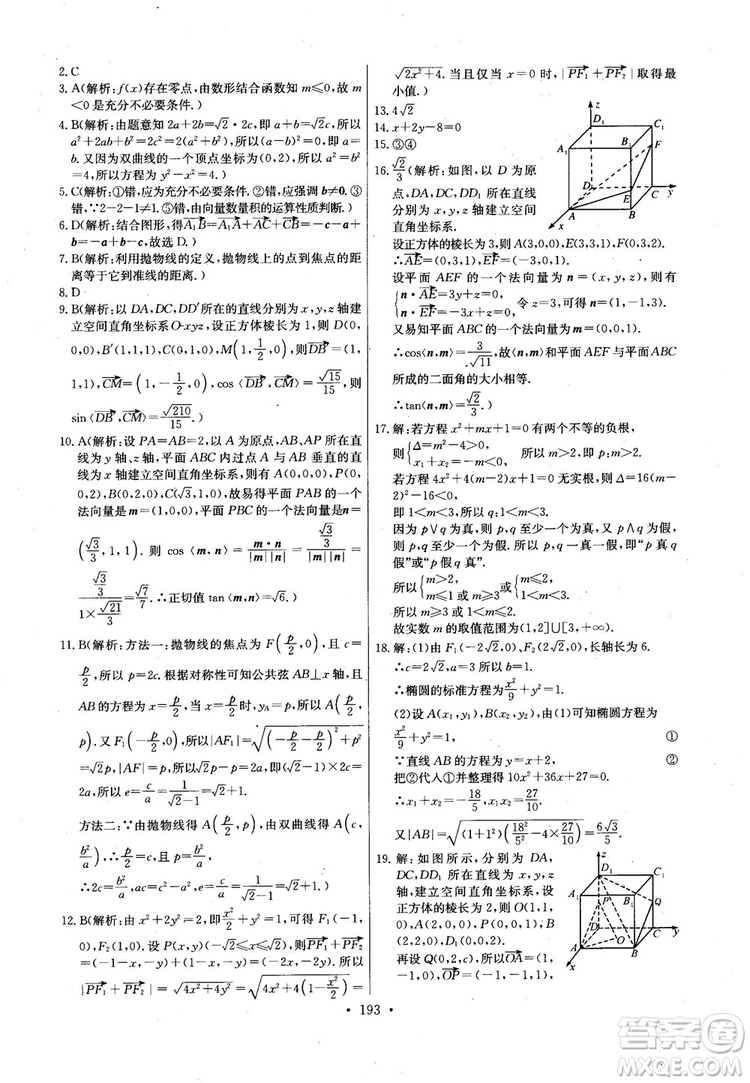 2. C
3. A(解析:f(x)存在零点,由数形结合函数知 m≤0,故 m
<0是充分不必要条件.)
4. B(解析:由题意知 2a+2b=√2·2c,即 a+b=√2c,所以
a²+2ab+b²=2c²=2(a²+b²),所以(a-b)²=0,即 a=
b.又因为双曲线的一个顶点坐标为(0,2),所以 a²=b²=
4,所以方程为 y²-x²=4.)
5. C(解析:①错,应为充分不必要条件.②错,应强调b≠0.③
错,∵2-2-1≠1.⑤错,由向量数量积的运算性质判断.)
6. D(解析:结合图形,得A₁B=A₁A+AC+CB=-c-a+
b=-a+b-c,故选 D.)
7. B(解析:利用抛物线的定义,抛物线上的点到焦点的距
离等于它到准线的距离.)
8. D
9. B(解析:以 DA,DC,DD′所在的直线分别为 x,y,z轴建
立空间直角坐标系 O-xyz,设正方体棱长为 1,则 D(0,
0,0),B′(1,1,1),C(0,1,0),M(1,1/2,0),所以DB′=(1,
1,1),CM=(1,-1/2,0),cos⟨DB′,CM⟩=√15/15,则
sin⟨DB′,CM⟩=√210/15.)
10. A(解析:设 PA=AB=2,以 A 为原点,AB、AP所在直
线为 y 轴、z轴,平面 ABC 内过点 A 与 AB 垂直的直
线为 x 轴建立空间直角坐标系,则 A(0,0,0),P(0,
0,2),B(0,2,0),C(√3,1,0),易得平面 PAB 的一个
法向量为 m=(1,0,0),平面 PBC 的一个法向量为n=
(√3/3,1,1).则 cos⟨m,n⟩=m·n/|m||n|=(√3/3)/|m||n|=
(√3/3)/(1×√21/3)=1/√7.∴正切值 tan⟨m,n⟩=√6.)
11. B(解析:方法一:抛物线的焦点为 F(p/2,0),且 c=
p/2,所以 p=2c.根据对称性可知公共弦 AB⊥x 轴,且
AB 的方程为 x=p/2,当 x=p/2时,y_A=p,所以 A(p/2,
p).又 F₁(-p/2,0),所以|AF₁|=√((-p/2-p/2)²+p²)
=√2p,|AF|=p,所以√2p-p=2a,即(√2-1)×2c=
2a,所以 e=c/a=1/(√2-1)=√2+1.
方法二:由抛物线得 A(p/2,p),由双曲线得 A(c,
b²/a)∴p/2=c,p=b²/a,
∴2c=b²/a,∴c/a=1/(√2-1)=√2+1.)
12. B(解析:由 x²+2y²=2,得x²/2+y²=1,可得 F₁(-1,
0),F₂(1,0).设 P(x,y)(-√2≤x≤√2),则PF₁+PF₂
=(-1-x,-y)+(1-x,-y)=(-2x,-2y).所以
|PF₁+PF₂|=√(4x²+4y²)=√(4x²+4(1-x²/2))=
√(2x²+4).当且仅当 x=0时,|PF₁+PF₂|取得最
小值.)
13. 4√2
14. x+2y-8=0
15. ③④
16. √2/3(解析:如图,以 D为原
点,DA,DC,DD₁所在直线
分别为 x,y,z 轴建立空间
直角坐标系.
设正方体的棱长为 3,则 A(3,0,0),E(3,3,1),F(0,3,2).
∴AE=(0,3,1),EF=(-3,0,1).
设平面 AEF 的一个法向量为 n=(x,y,z),所以
{n·AE=3y+z=0 n·EF=-3x+z=0 令 z=3,可得 n=(1,-1,3).
又易知平面 ABC 的一个法向量为 m=(0,0,1).
∴cos⟨n,m⟩=3/√11,故平面 AEF与平面 ABC
所成的二面角的大小相等.
∴tan⟨n,m⟩=√2/3.)
17. 解:若方程 x²+mx+1=0有两个不等的负根,
则{Δ=m²-4>0 x₁+x₂=-m<0 所以 m>2,即 p:m>2.
若方程 4x²+4(m-2)x+1=0无实根,则 Δ=16(m-
2)²-16<0,
即 1<m<3,所以 q:1<m<3.
因为 p∨q 为真,则 p,q 至少一个为真,又 p∧q 为
假,则 p,q至少一个为假,所以 p,q 一真一假,即“p真q
假”或“p假q真”.
所以{m>2 m≤1或m≥3或{m≤2 1<m<3
所以 m≥3或 1<m≤2.
故实数 m 的取值范围为(1,2]∪[3,+∞).
18. 解:(1)由 F₁(-2√2,0),F₂(2√2,0),长轴长为 6.
∴c=2√2,a=3,所以 b=1.
∴椭圆的标准方程为x²/9+y²/1=1.
(2)设A(x₁,y₁),B(x₂,y₂),由(1)可知椭圆方程为
x²/9+y²/1=1, ①
∴直线 AB 的方程为 y=x+2, ②
把②代入①并整理得 10x²+36x+27=0.
∴x₁+x₂=-18/5,x₁x₂=27/10.
又|AB|=√((1+1²)(18²/5²-4×27/10))=6√3/5.
19. 解:如图所示,分别为 DA,
DC,DD₁所在直线为 x,y,z
轴,建立空间直角坐标系,设
正方体的棱长为 2,O(1,1,
0),A(2,0,0),P(0,0,1),
B(2,2,0),D₁(0,0,2).
再设 Q(0,2,c),所以OA=(1,
-1,0),OP=(-1,-1,1),
z
D₁
C₁
A₁
B₁
F
D
C
y
E
A
B
x
z
D₁
C₁
A₁
B₁
P
Q
D
C
y
O
A
B
x
· 193 ·
答案圈